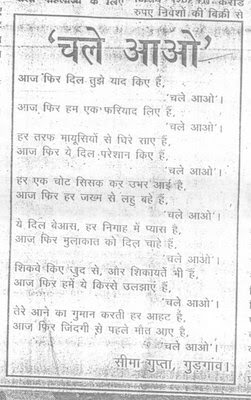 रुपए निवेशों की बिक्री से
'चले आओ'
आज फिर दिल तुझे याद किए हैं,
'चले आओ'।
आज फिर हम एक फरियाद लिए हैं,
'चले आओ'।
हर तरफ मायूसियों से घिरे साए हैं,
आज फिर ये दिल परेशान किए हैं,
'चले आओ'।
हर एक चोट सिसक कर उभर आई है,
आज फिर हर जख्म से लहु बहे हैं,
'चले आओ'।
ये दिल बेआस, हर निगाह में प्यास है,
आज फिर मुलाकात को दिल चाहे हैं,
'चले आओ'।
शिकवे किए खुद से, और शिकायतें भी हैं,
आज फिर हमें ये किस्से उलझाएं हैं,
'चले आओ'।
तेरे आने का गुमान करती हर आहट है,
आज फिर जिंदगी से पहले मौत आए है,
'चले आओ'।
सीमा गुप्ता, गुड़गाव।